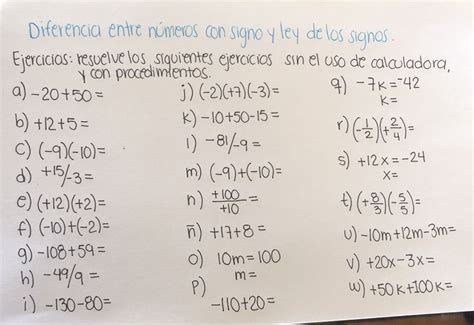 Diferencia entre números con signo y ley de los signos.
Ejercicios: resuelve los siguientes ejercicios sin el uso de calculadora,
y con procedimientos.
a) -20+50=
b) +12+5=
c) (-9)(-10)=
d) +15/-3=
e) (+12)(+2)=
f) (-10)+(-2)=
g) -108+59=
h) -49/9=
i) -130-80=
j) (-2)(+7)(-3)=
k) -10+50-15=
l) -81/-9=
m) (-9)+(-10)=
n) +100/+10=
ñ) +17+8=
o) 10m=100
m=
p)
-110+20=
q) -7k=-42
k=
r) (-1/2)(+2/4)=
s) +12x=-24
x=
t) (+8/3)(-5/5)=
u) -10m+12m-3m=
v) +20x-3x=
w) +50k+100k=